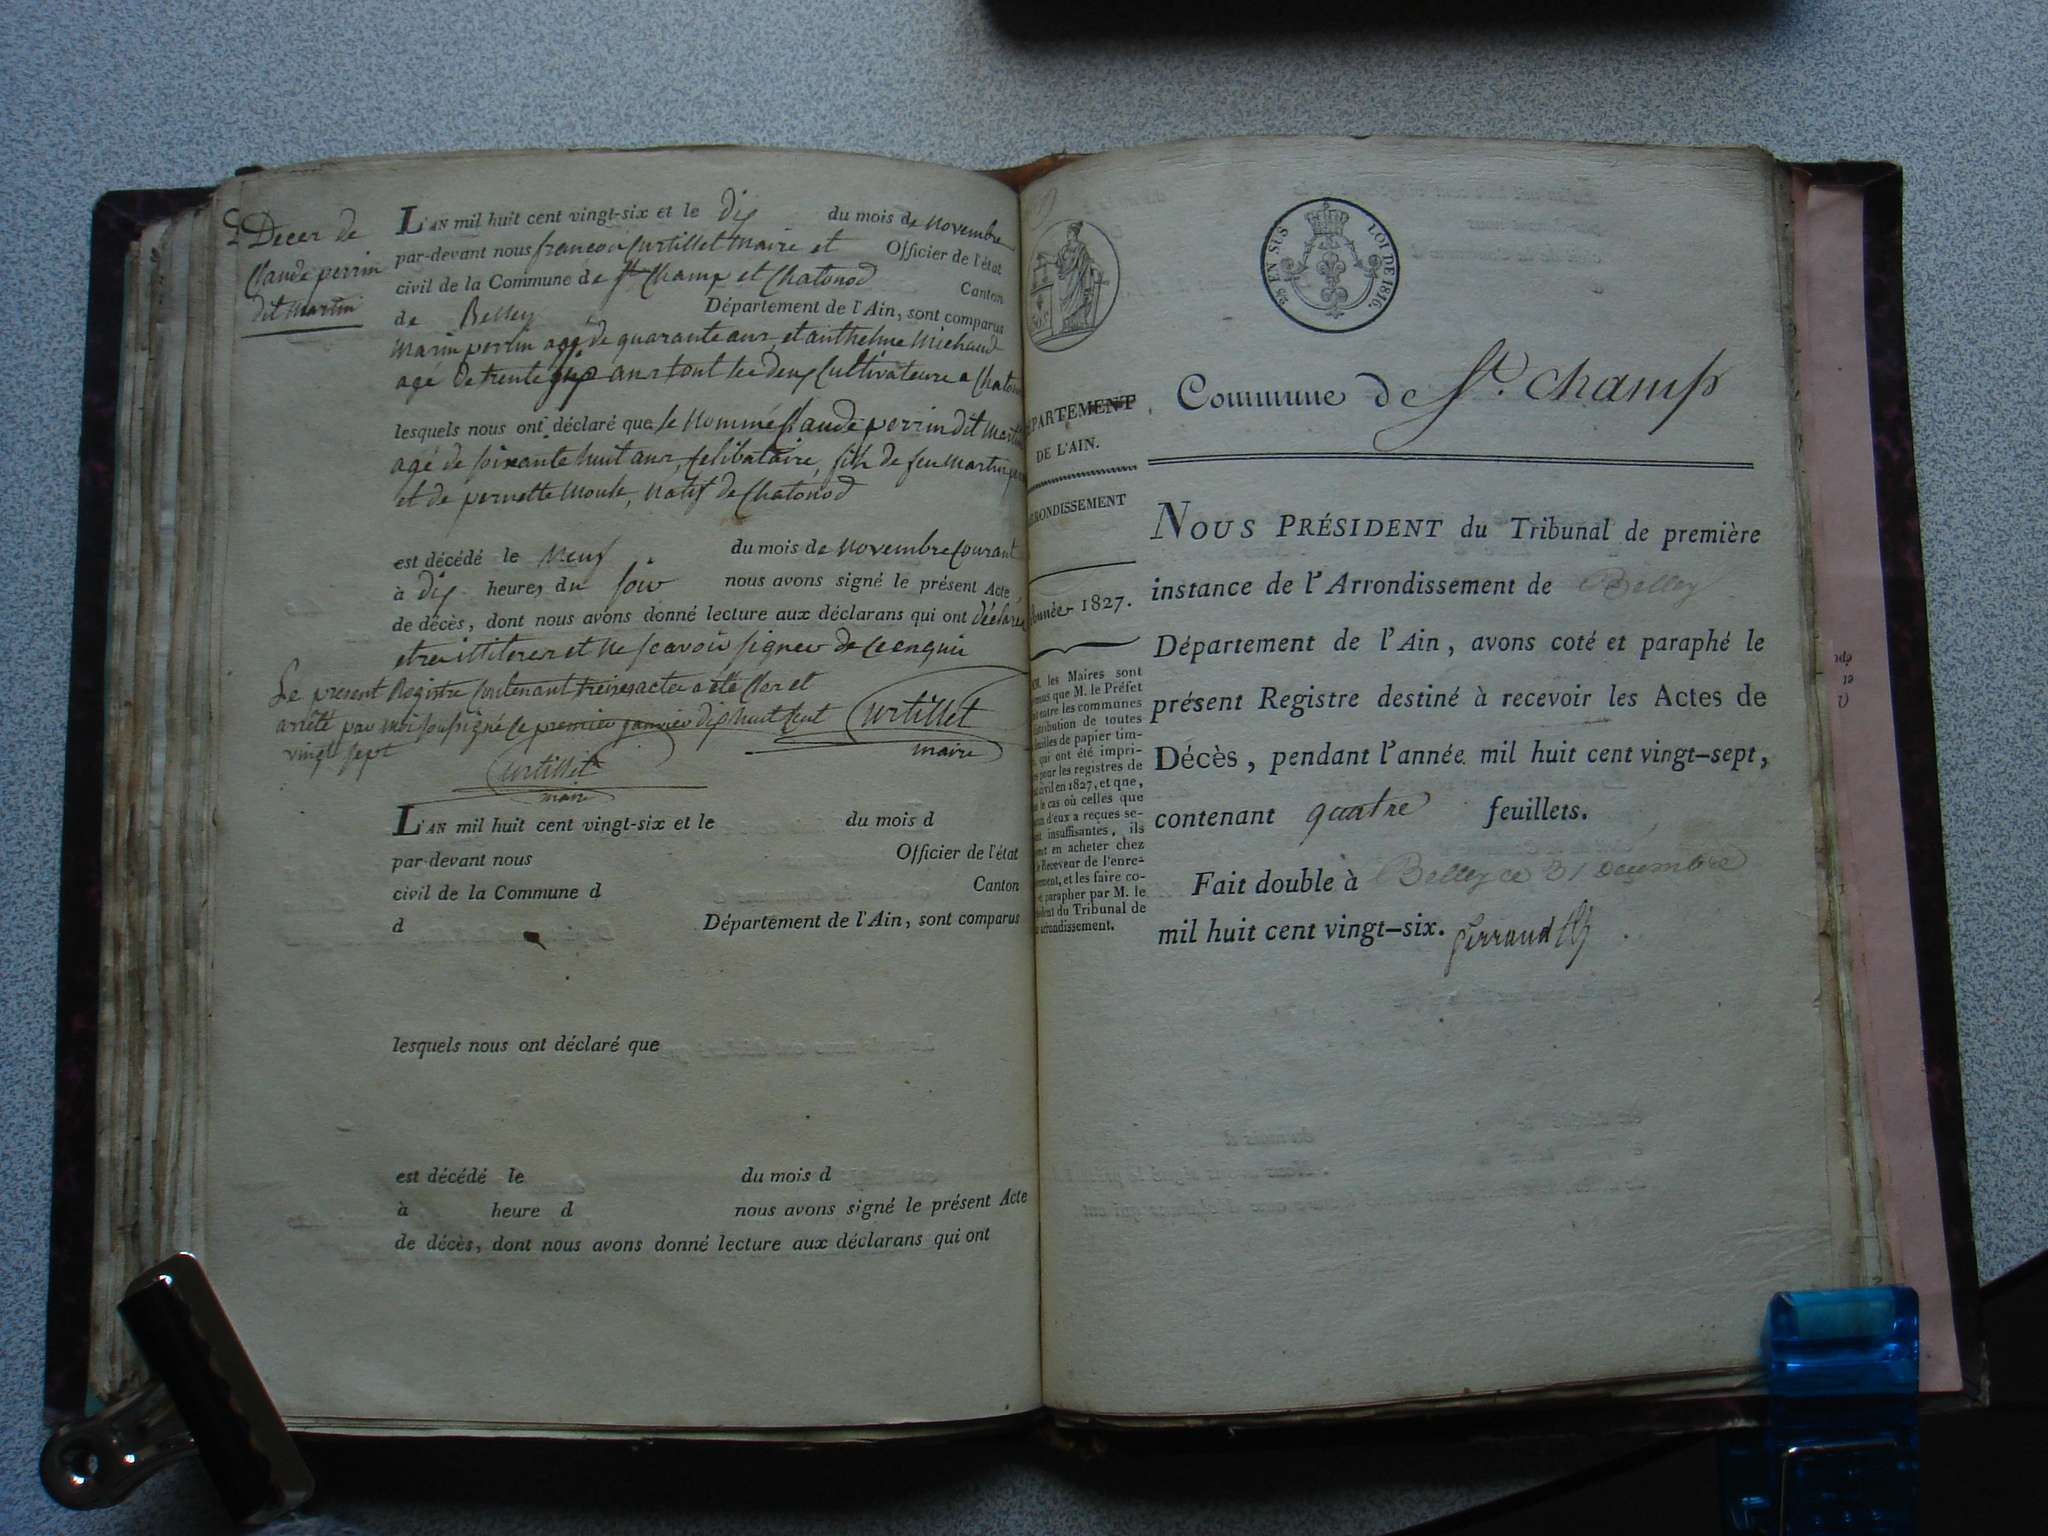 Decer de
Claude perrin
dit Martin
L'AN mil huit cent vingt-six et le dix du mois de novembre
par-devant nous francois Curtillet Maire et Officier de l'état
civil de la Commune de St Champ et Chatonod Canton
de Belley Département de l'Ain, sont comparus
Marin perrin agé de quarante ans, et anthelme Michaud
agé de trente ans tout les deux Cultivateurs a Chatonod
lesquels nous ont déclaré que le nommé Claude perrin dit Martin
agé de soixante huit ans, Celibataire, fils de feu Martin
et de pernette Moule, natif de Chatonod
est décédé le neuf du mois de novembre Courant
à dix heures du soir nous avons signé le présent Acte
de décès, dont nous avons donné lecture aux déclarans qui ont déclaré
etre illiterer et ne scavoir signer de Ce enquis
Le present Registre Contenant treize acter a eté Clor et
arrêté par moi soussigné Ce premier janvier dix huit Cent
vingt sept
Curtillet
maire
Curtillet
maire
L'AN mil huit cent vingt-six et le du mois d
par-devant nous Officier de l'état
civil de la Commune d Canton
d Département de l'Ain, sont comparus
lesquels nous ont déclaré que
est décédé le du mois d
à heure d nous avons signé le présent Acte
de décès, dont nous avons donné lecture aux déclarans qui ont
2/5 EN SUS LOI DE 1816.
PARTEMENT
DE L'AIN.
RONDISSEMENT
Année 1827.
MM. les Maires sont
nus que M. le Préfet
entre les communes
tribution de toutes
uilles de papier tim-
qui ont été impri-
pour les registres de
civil en 1827, et que,
le cas où celles que
d'eux a reçues se-
insuffisantes, ils
en acheter chez
Receveur de l'enre-
ement, et les faire co-
parapher par M. le
sident du Tribunal de
arrondissement.
Commune de St. Champ
NOUS PRÉSIDENT du Tribunal de première
instance de l'Arrondissement de Belley
Département de l'Ain, avons coté et paraphé le
présent Registre destiné à recevoir les Actes de
Décès, pendant l'année mil huit cent vingt-sept,
contenant quatre feuillets.
Fait double à Belley ce 31 decembre
mil huit cent vingt-six.